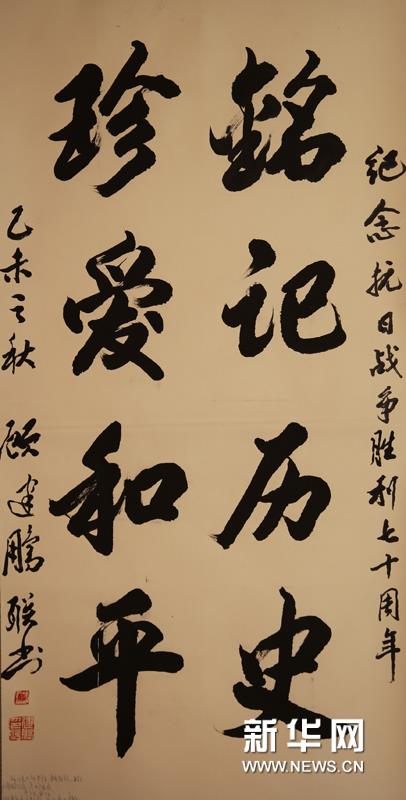 纪念抗日战争胜利七十周年
铭记历史
珍爱和平
乙未之秋 顾建鹏联书
新华网
WWW.NEWS.CN